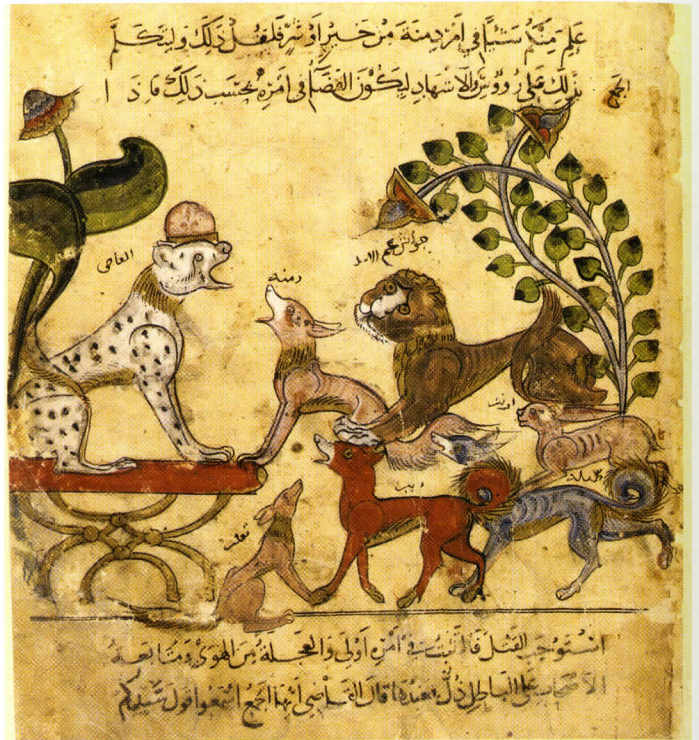 علم منكم شيئا في امر دمنة من خير او شر فليقل ذلك وليتكلم
الجمع
بذلك على رؤوس والاشهاد ليكون القضا في امره بحسب ذلك فاذا
جواس عم الاسد
دمنه
القاضي
ارنب
ذيب
ثعلب
استوجب القتل فالتثبت في امره اولى والعجلة من الهوى ومتابعة
الاصحاب على الباطل ذل فعندها قال القاضي ايها الجمع اسمعوا قول سيدكم